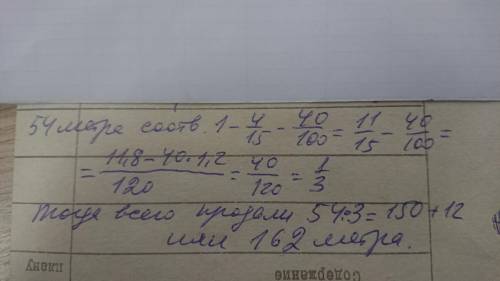 54 метра соотв. 1 - 4/15 - 40/100 = 11/15 - 40/100 =
= (11,8 - 40·1,2)/120 = 40/120 = 1/3
Тогда всего продали 54·3 = 150 + 12
или 162 метра.
Содержание